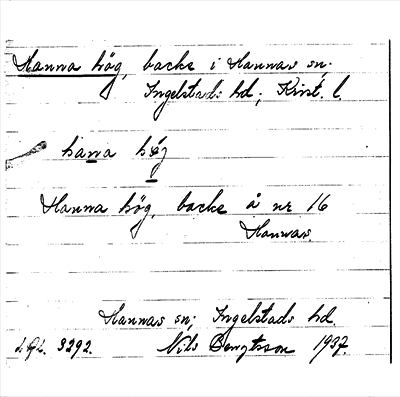 Hanna hög, backe i Hannas sn.
Ingelstads hd., Krist. l.
hana hög
Hanna hög, backe å nr 16
Hannas.
Hannas sn, Ingelstads hd.
3292. Nils Bengtsson 1937.